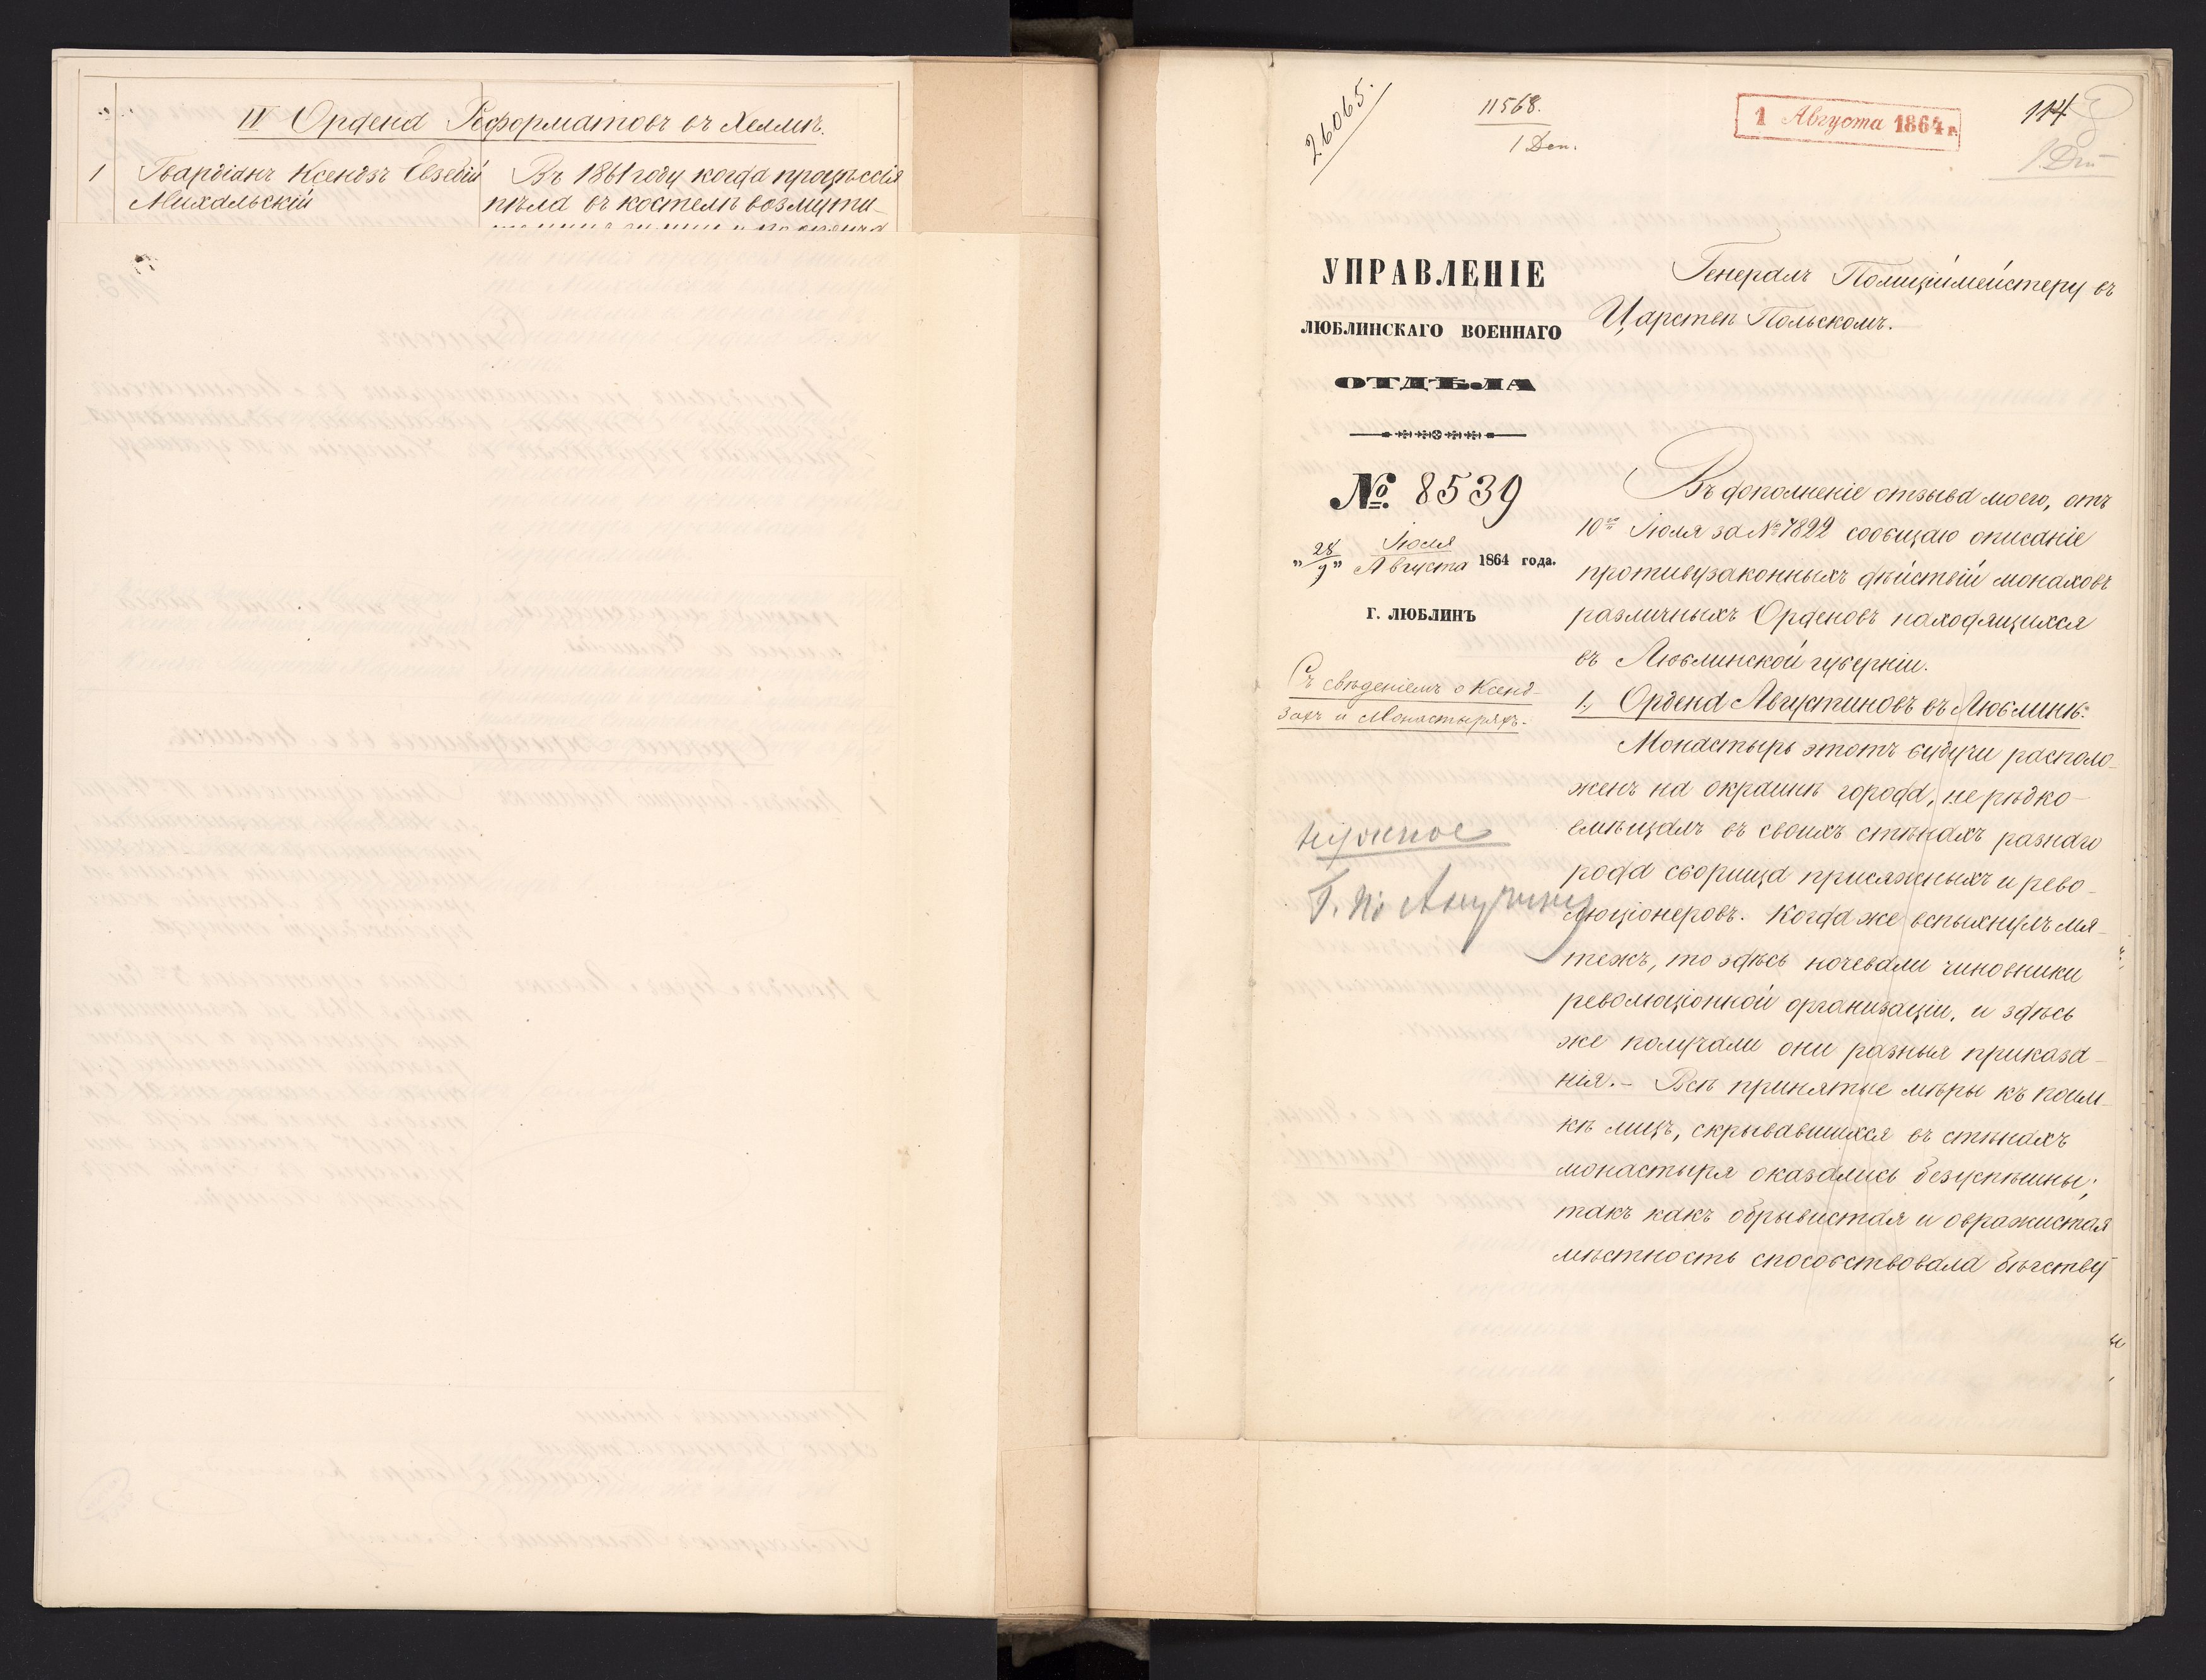 IV Ордена Реформатовъ въ Хелмѣ.
1 Гвардіанъ Ксендзъ Евзебій
Михальскій
Въ 1861 году когда процѣссія
пѣла въ костелѣ возмути-
26065.
11568.
1 Деп.
1 Августа 1864 г.
114
УПРАВЛЕНІЕ
ЛЮБЛИНСКАГО ВОЕННАГО
ОТДѢЛА
№ 8539
„28/9" Іюля/Августа 1864 года.
Г. ЛЮБЛИНЪ
Съ свѣденіемъ о Ксенд-
захъ и Монастыряхъ.
нужное
Генералъ Полиціймейстеру въ
Царствѣ Польскомъ.
Въ дополненіе отзыва моего, отъ
10го Іюля за № 7822 сообщаю описаніе
противузаконныхъ дѣйствій монаховъ
различныхъ Орденовъ находящихся
въ Люблинской губерніи.
1, Ордена Августиновъ въ Люблинѣ:
Монастырь этотъ будучи располо-
женъ на окраинѣ города, нерѣдко
вмѣщалъ въ своихъ стѣнахъ разнаго
рода сборища присяжныхъ и рево-
люціонеровъ. Когда же вспыхнулъ мя-
тежъ, то здѣсь ночевали чиновники
революціонной организаціи, и здѣсь
же получали они разныя приказа-
нія. – Всѣ принятые мѣры къ поим-
кѣ лицъ, скрывавшихся въ стѣнахъ
монастыря оказались безуспѣшны;
такъ какъ обрывистая и овражистая
мѣстность способствовала бѣгству